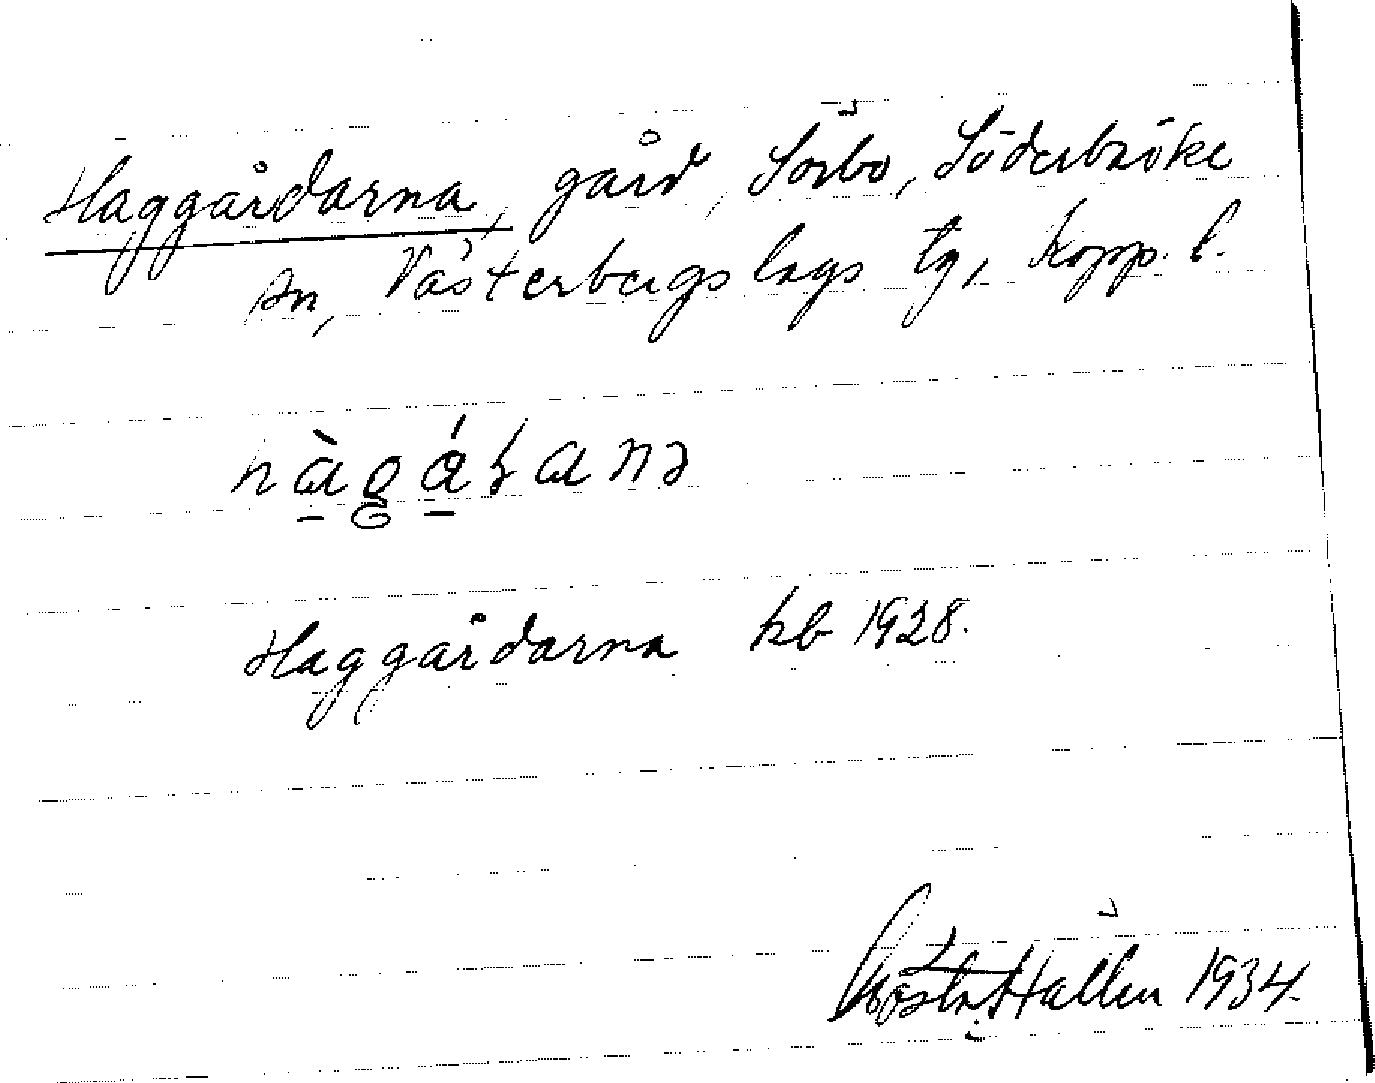 Haggårdarna, gård, Sörbo, Söderbärke
sn, Västerbergslags tg, Kopp. l.
Haggårdarna kb 1928.
Gösta Hallén 1934.